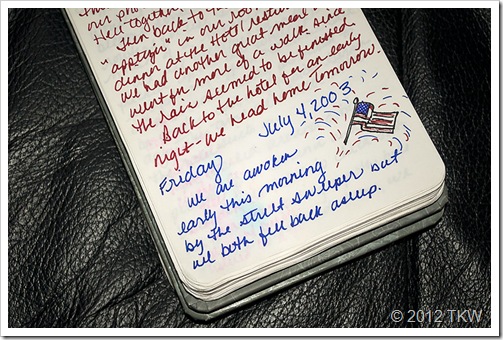 our pho
Hell together
Then back to
"apptizn" in our roo
dinner at the Hotel restau
we had another great meal
went for more of a walk since
the rain seemed to be finished
Back to the hotel for an early
night - we head home tomorrow.
Friday July 4, 2003
we are awoken
early this morning
by the street sweeper but
we both fell back asleep.
© 2012 TKW